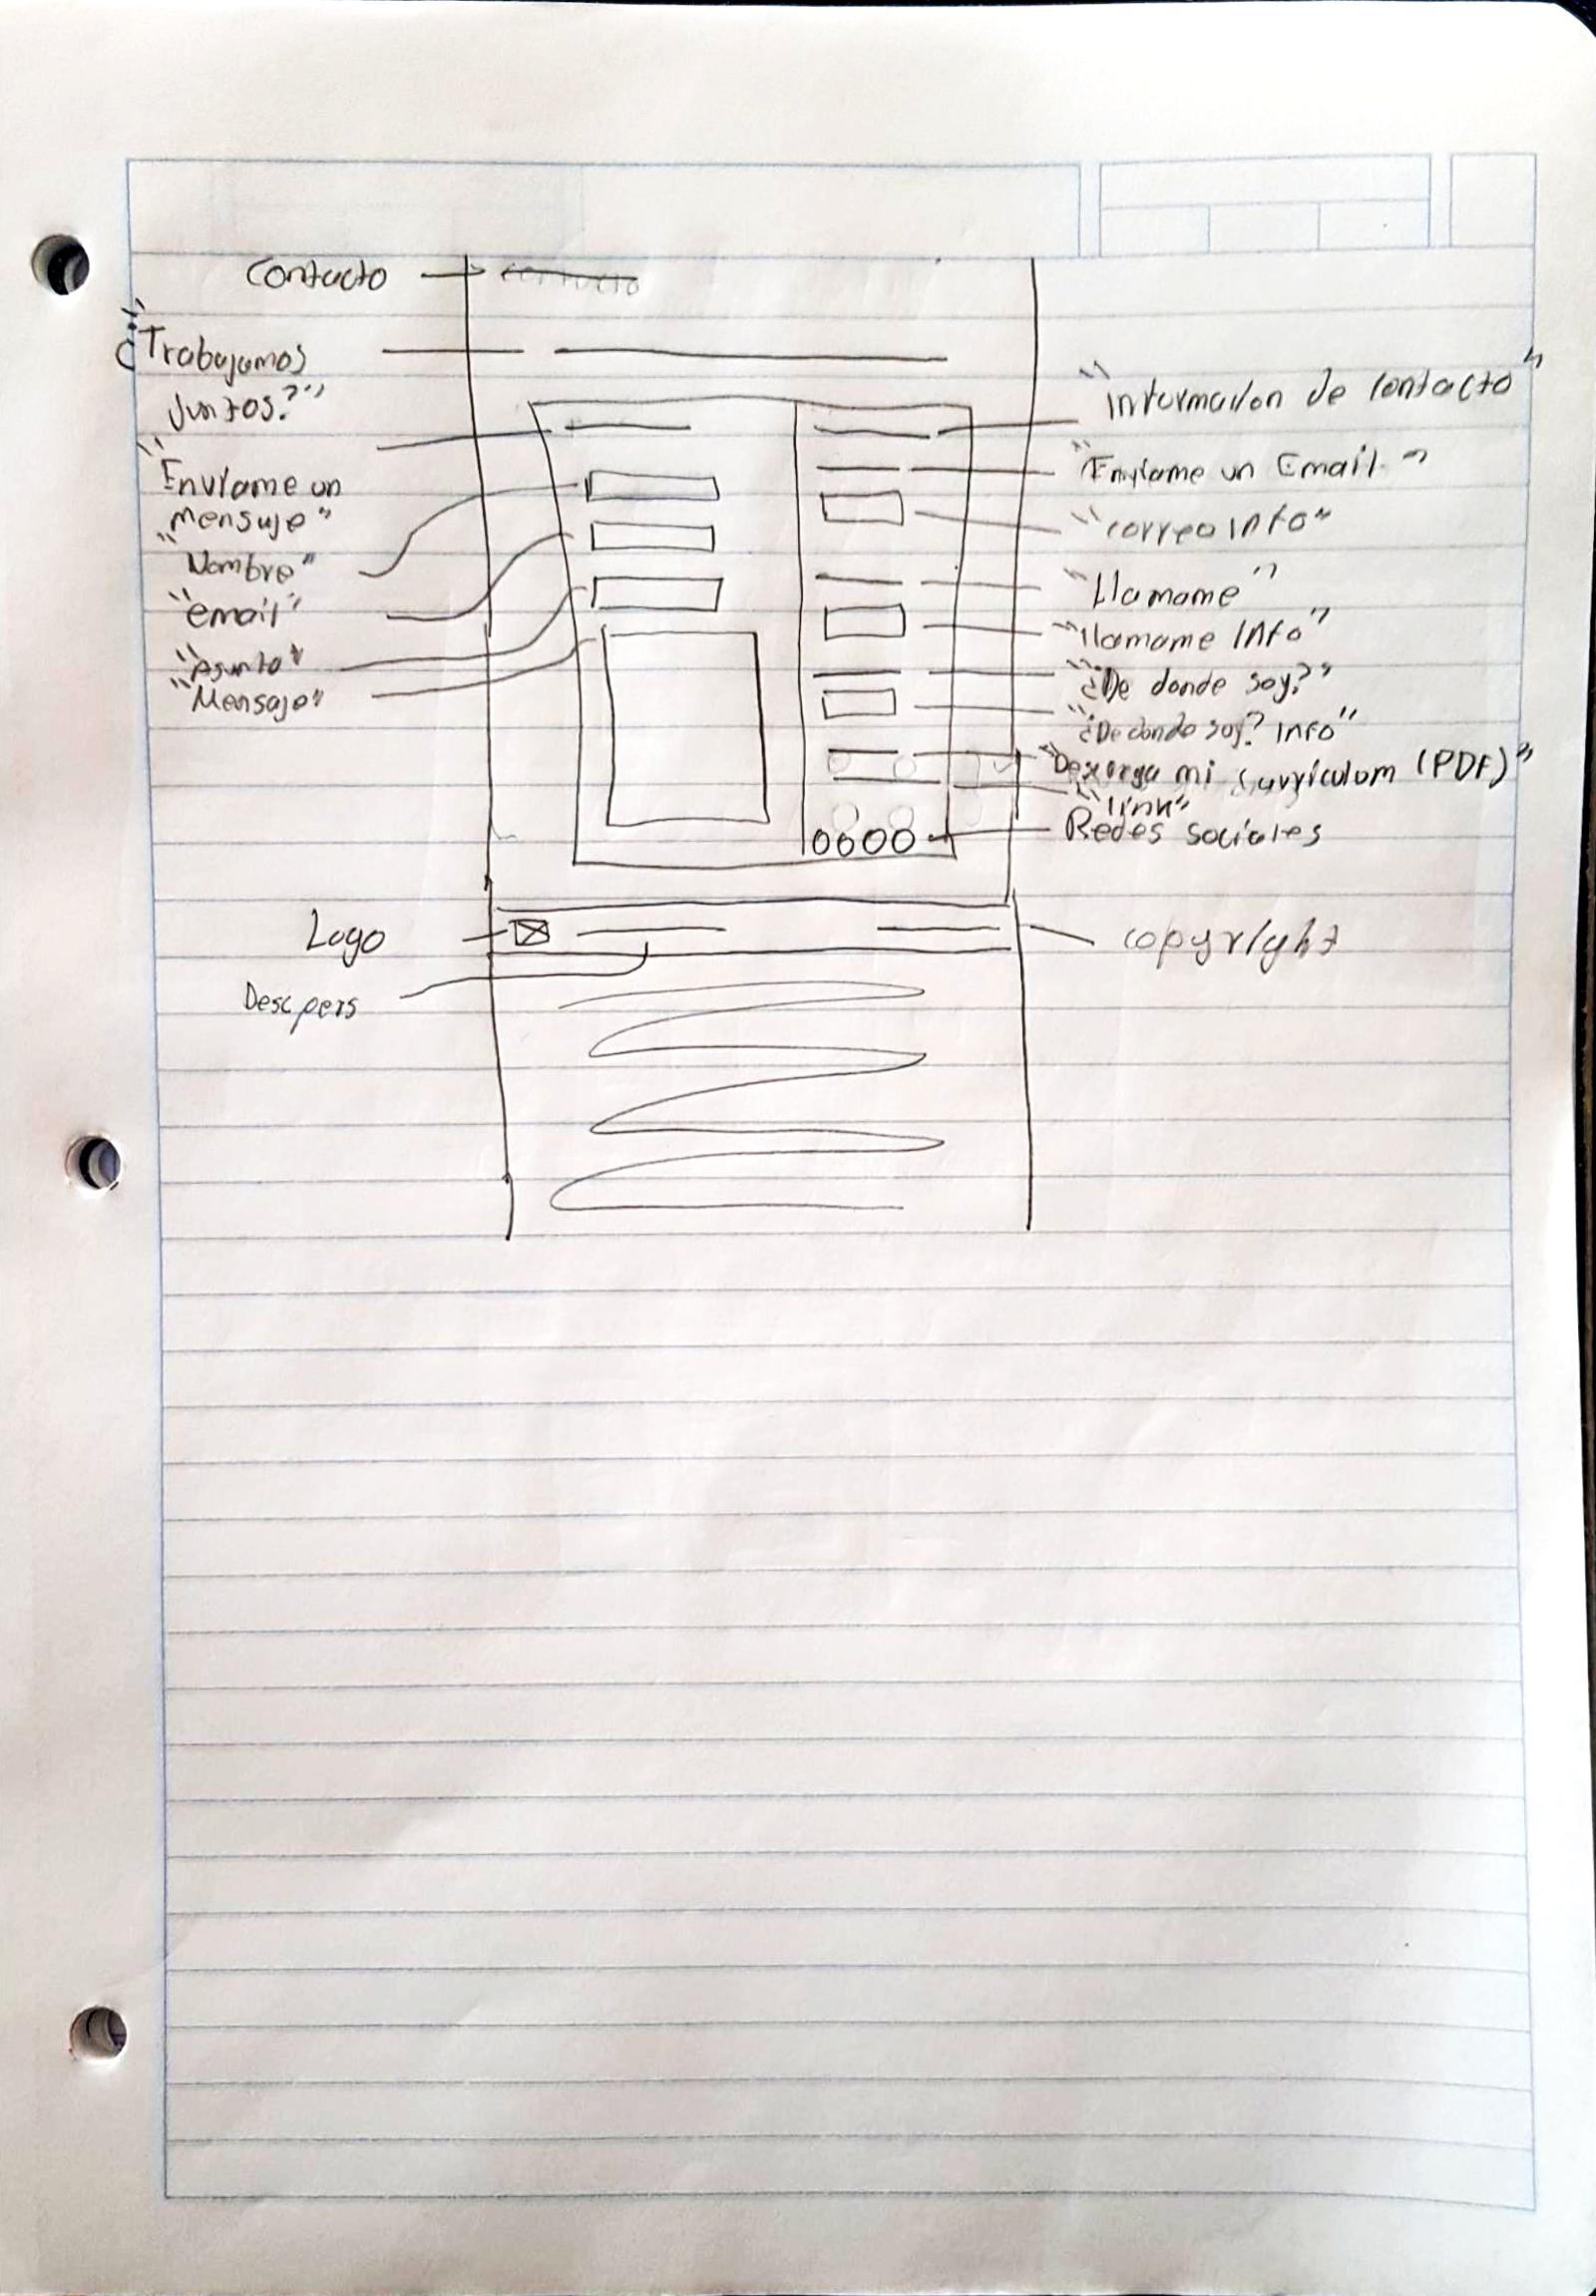 Contacto
"¿Trabajamos
Juntos?"
"Envíame un
mensaje"
"Nombre"
"email"
"Asunto"
"Mensaje"
"Información de contacto"
"Envíame un Email"
"correo Info"
"Llamame"
"llamame Info"
"¿De donde soy?"
"¿De donde soy? Info"
"Descarga mi curriculum (PDF)"
"link"
Redes sociales
Logo
Desc pers
copyright